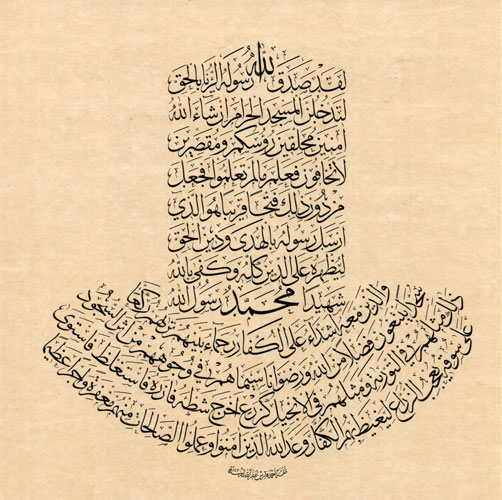 لقد صدق الله رسوله الرؤيا بالحق
لتدخلن المسجد الحرام ان شاء الله
آمنين محلقين رؤسكم ومقصرين
لا تخافون فعلم مالم تعلموا فجعل
من دون ذلك فتحا قريبا هو الذي
ارسل رسوله بالهدى ودين الحق
ليظهره على الدين كله وكفى بالله
شهيدا محمد رسول الله
والذين معه اشداء على الكفار رحماء بينهم تراهم ركعا
سجدا يبتغون فضلا من الله ورضوانا سيماهم في وجوههم من اثر السجود
ذلك مثلهم في التورية ومثلهم في الانجيل كزرع اخرج شطئه فازره فاستغلظ فاستوى
على سوقه يعجب الزراع ليغيظ بهم الكفار وعد الله الذين امنوا وعملوا الصالحات منهم مغفرة واجرا عظيما